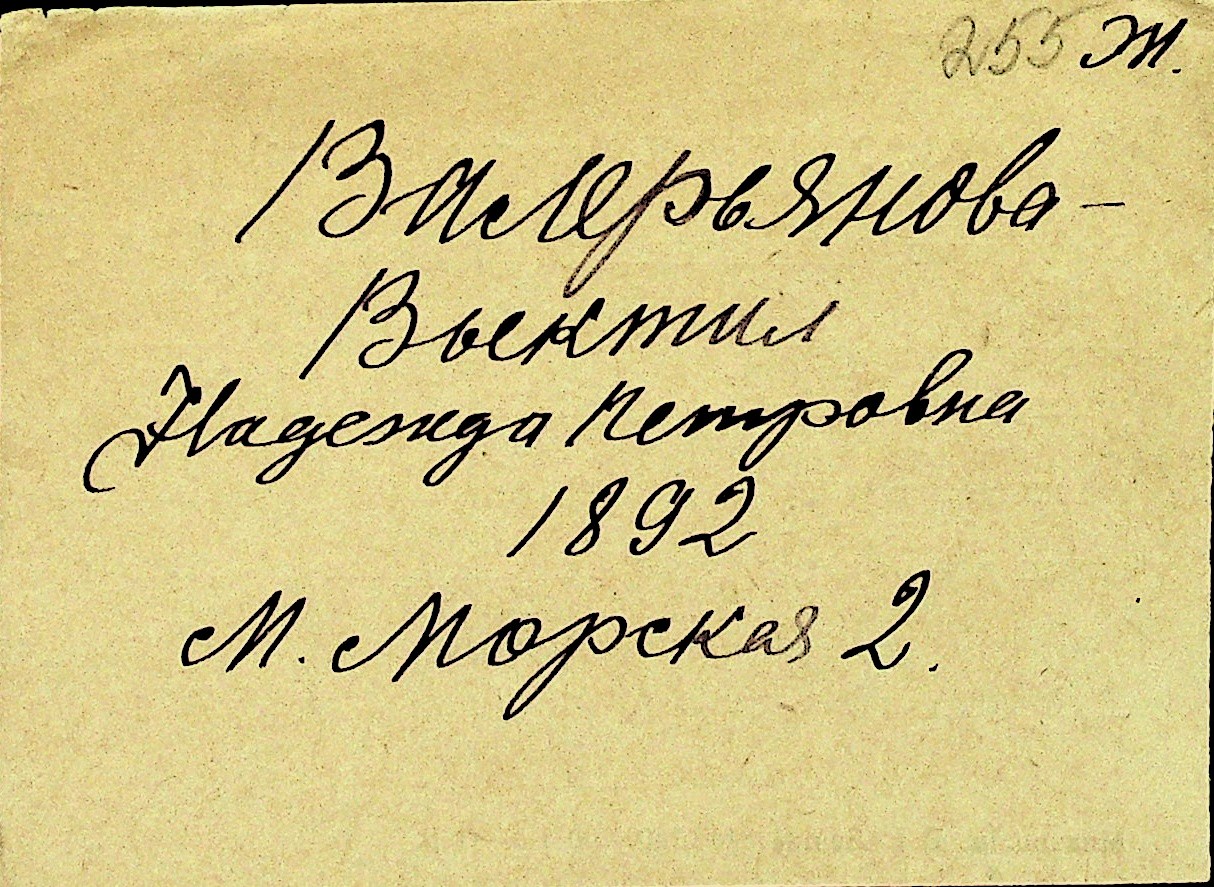 255 Ж.
Валерьянова-
Выектил
Надежда Петровна
1892
М. Морская 2.